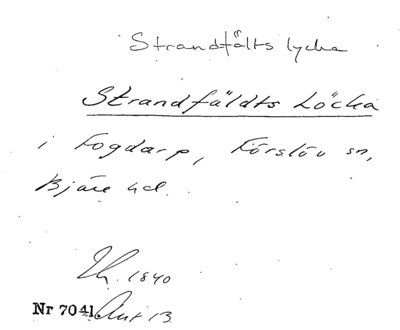 Strandfälts lycka
Strandfäldts Löcka
i Fogdarp, Förslöv sn,
Bjäre hd.
Lh. 1840
Nr 7041. Akt 13